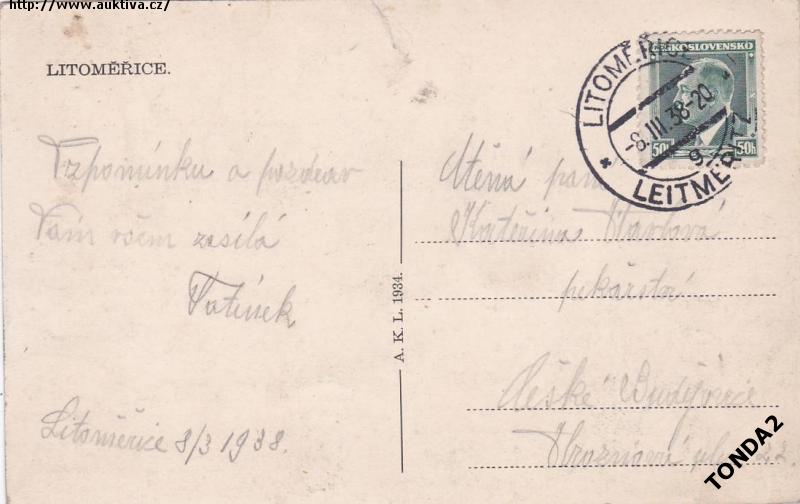 http://www.auktiva.cz/
LITOMĚŘICE.
Vzpomínku a pozdrav
Vám všem zasílá
Litoměřice 8/3 1938.
A. K. L. 1934.
ČESKOSLOVENSKO
50h 50h
LITOMĚŘICE
-8.III.38-20
LEITMERITZ
Ctěná paní
Kateřina
pekařství
České Budějovice
TONDA2